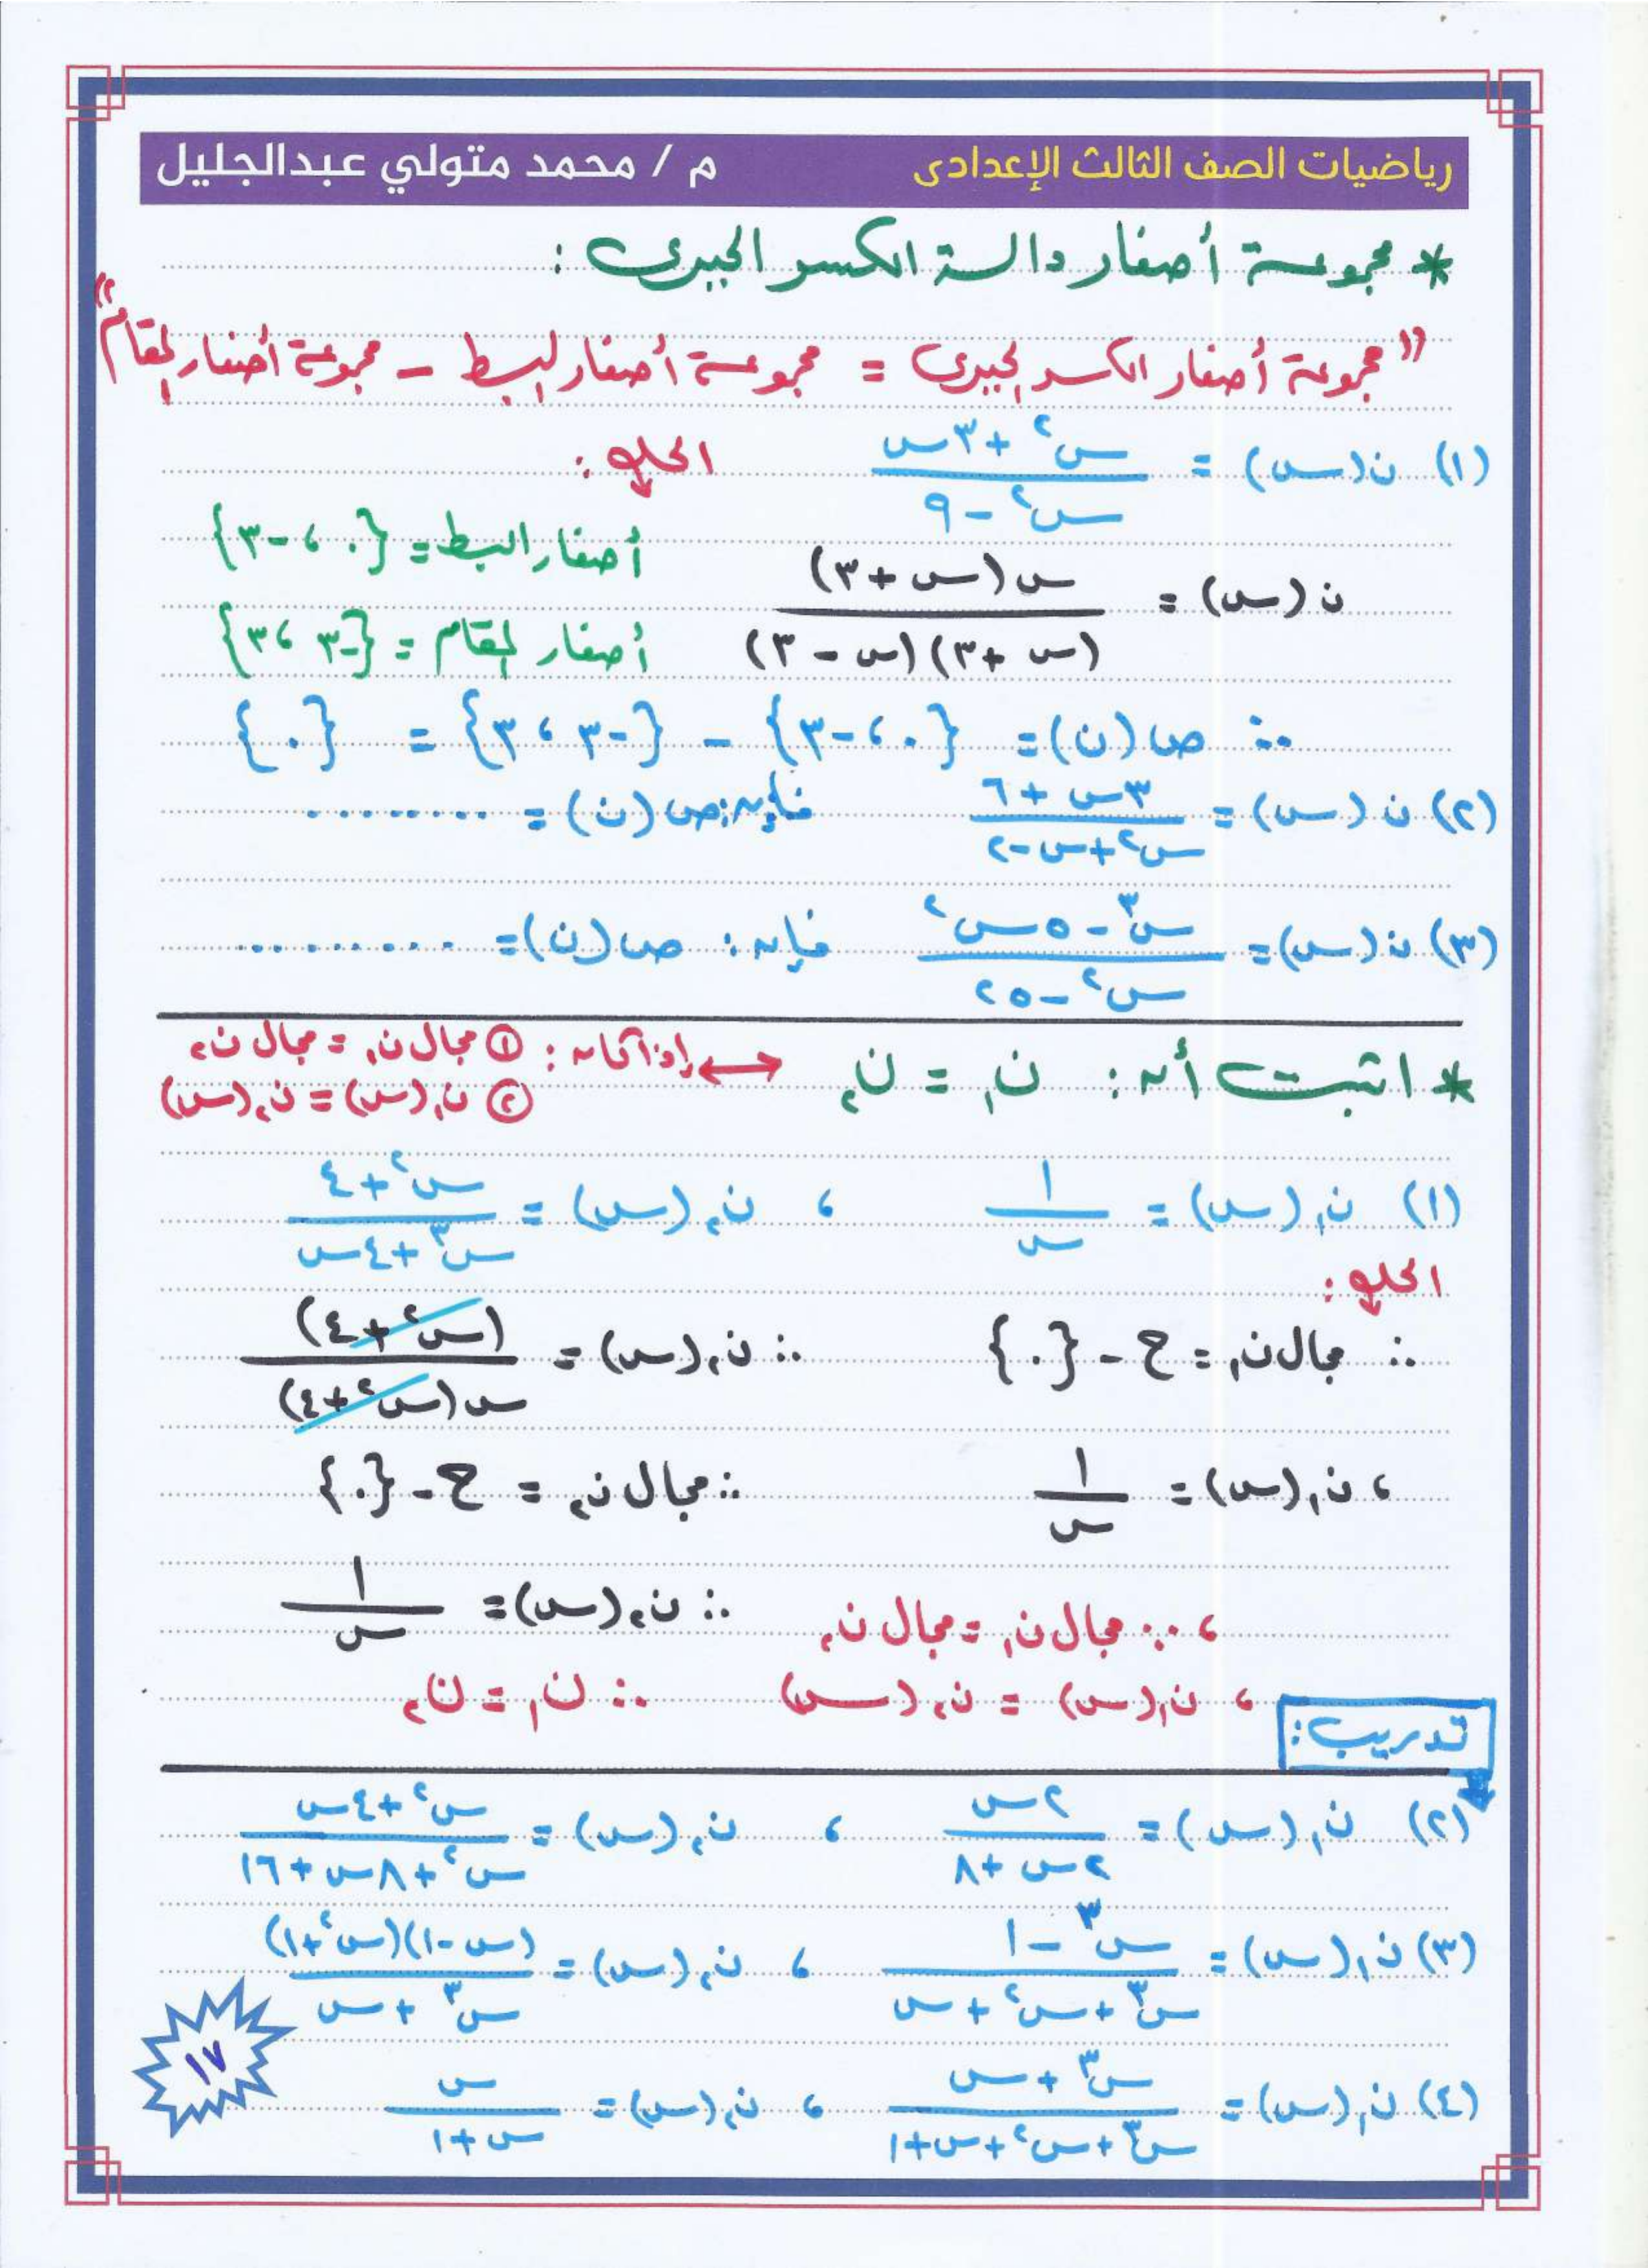 رياضيات الصف الثالث الإعدادى م / محمد متولي عبدالجليل
* مجموعة أصفار دالة الكسر الجبرى :
" مجموعة أصفار الكسر الجبرى = مجموعة أصفار البسط – مجموعة أصفار المقام "
(١) ن(س) = (س٢ + ٣س) / (س٢ – ٩) الحل :
ن(س) = س(س + ٣) / (س + ٣)(س – ٣) أصفار البسط = {٠ ، -٣}
أصفار المقام = {-٣ ، ٣}
∴ ص(ن) = {٠ ، -٣} – {-٣ ، ٣} = {٠}
(٢) ن(س) = (٣س + ٦) / (س٢ + س - ٢) فإن : ص(ن) = ..........
(٣) ن(س) = (س٣ – ٥س٢) / (س٢ – ٢٥) فإن : ص(ن) = ..........
* اثبت أن : ن١ = ن٢ ↔ إذا كان : ① مجال ن١ = مجال ن٢
② ن١(س) = ن٢(س)
(١) ن١(س) = ١ / س ، ن٢(س) = (س٢ + ٤) / (س٣ + ٤س)
الحل :
∴ مجال ن١ = ح - {٠} ∴ ن٢(س) = (س٢ + ٤) / س(س٢ + ٤)
، ن١(س) = ١ / س ∴ مجال ن٢ = ح - {٠}
، ∵ مجال ن١ = مجال ن٢ ∴ ن٢(س) = ١ / س
، ن١(س) = ن٢(س) ∴ ن١ = ن٢
تدريب :
(٢) ن١(س) = ٢س / (٢س + ٨) ، ن٢(س) = (س٢ + ٤س) / (س٢ + ٨س + ١٦)
(٣) ن١(س) = (س٣ – ١) / (س٣ + س٢ + س) ، ن٢(س) = (س - ١)(س٢ + ١) / (س٣ + س)
(٤) ن١(س) = (س٣ + س) / (س٣ + س٢ + س + ١) ، ن٢(س) = س / (س + ١)
١٧